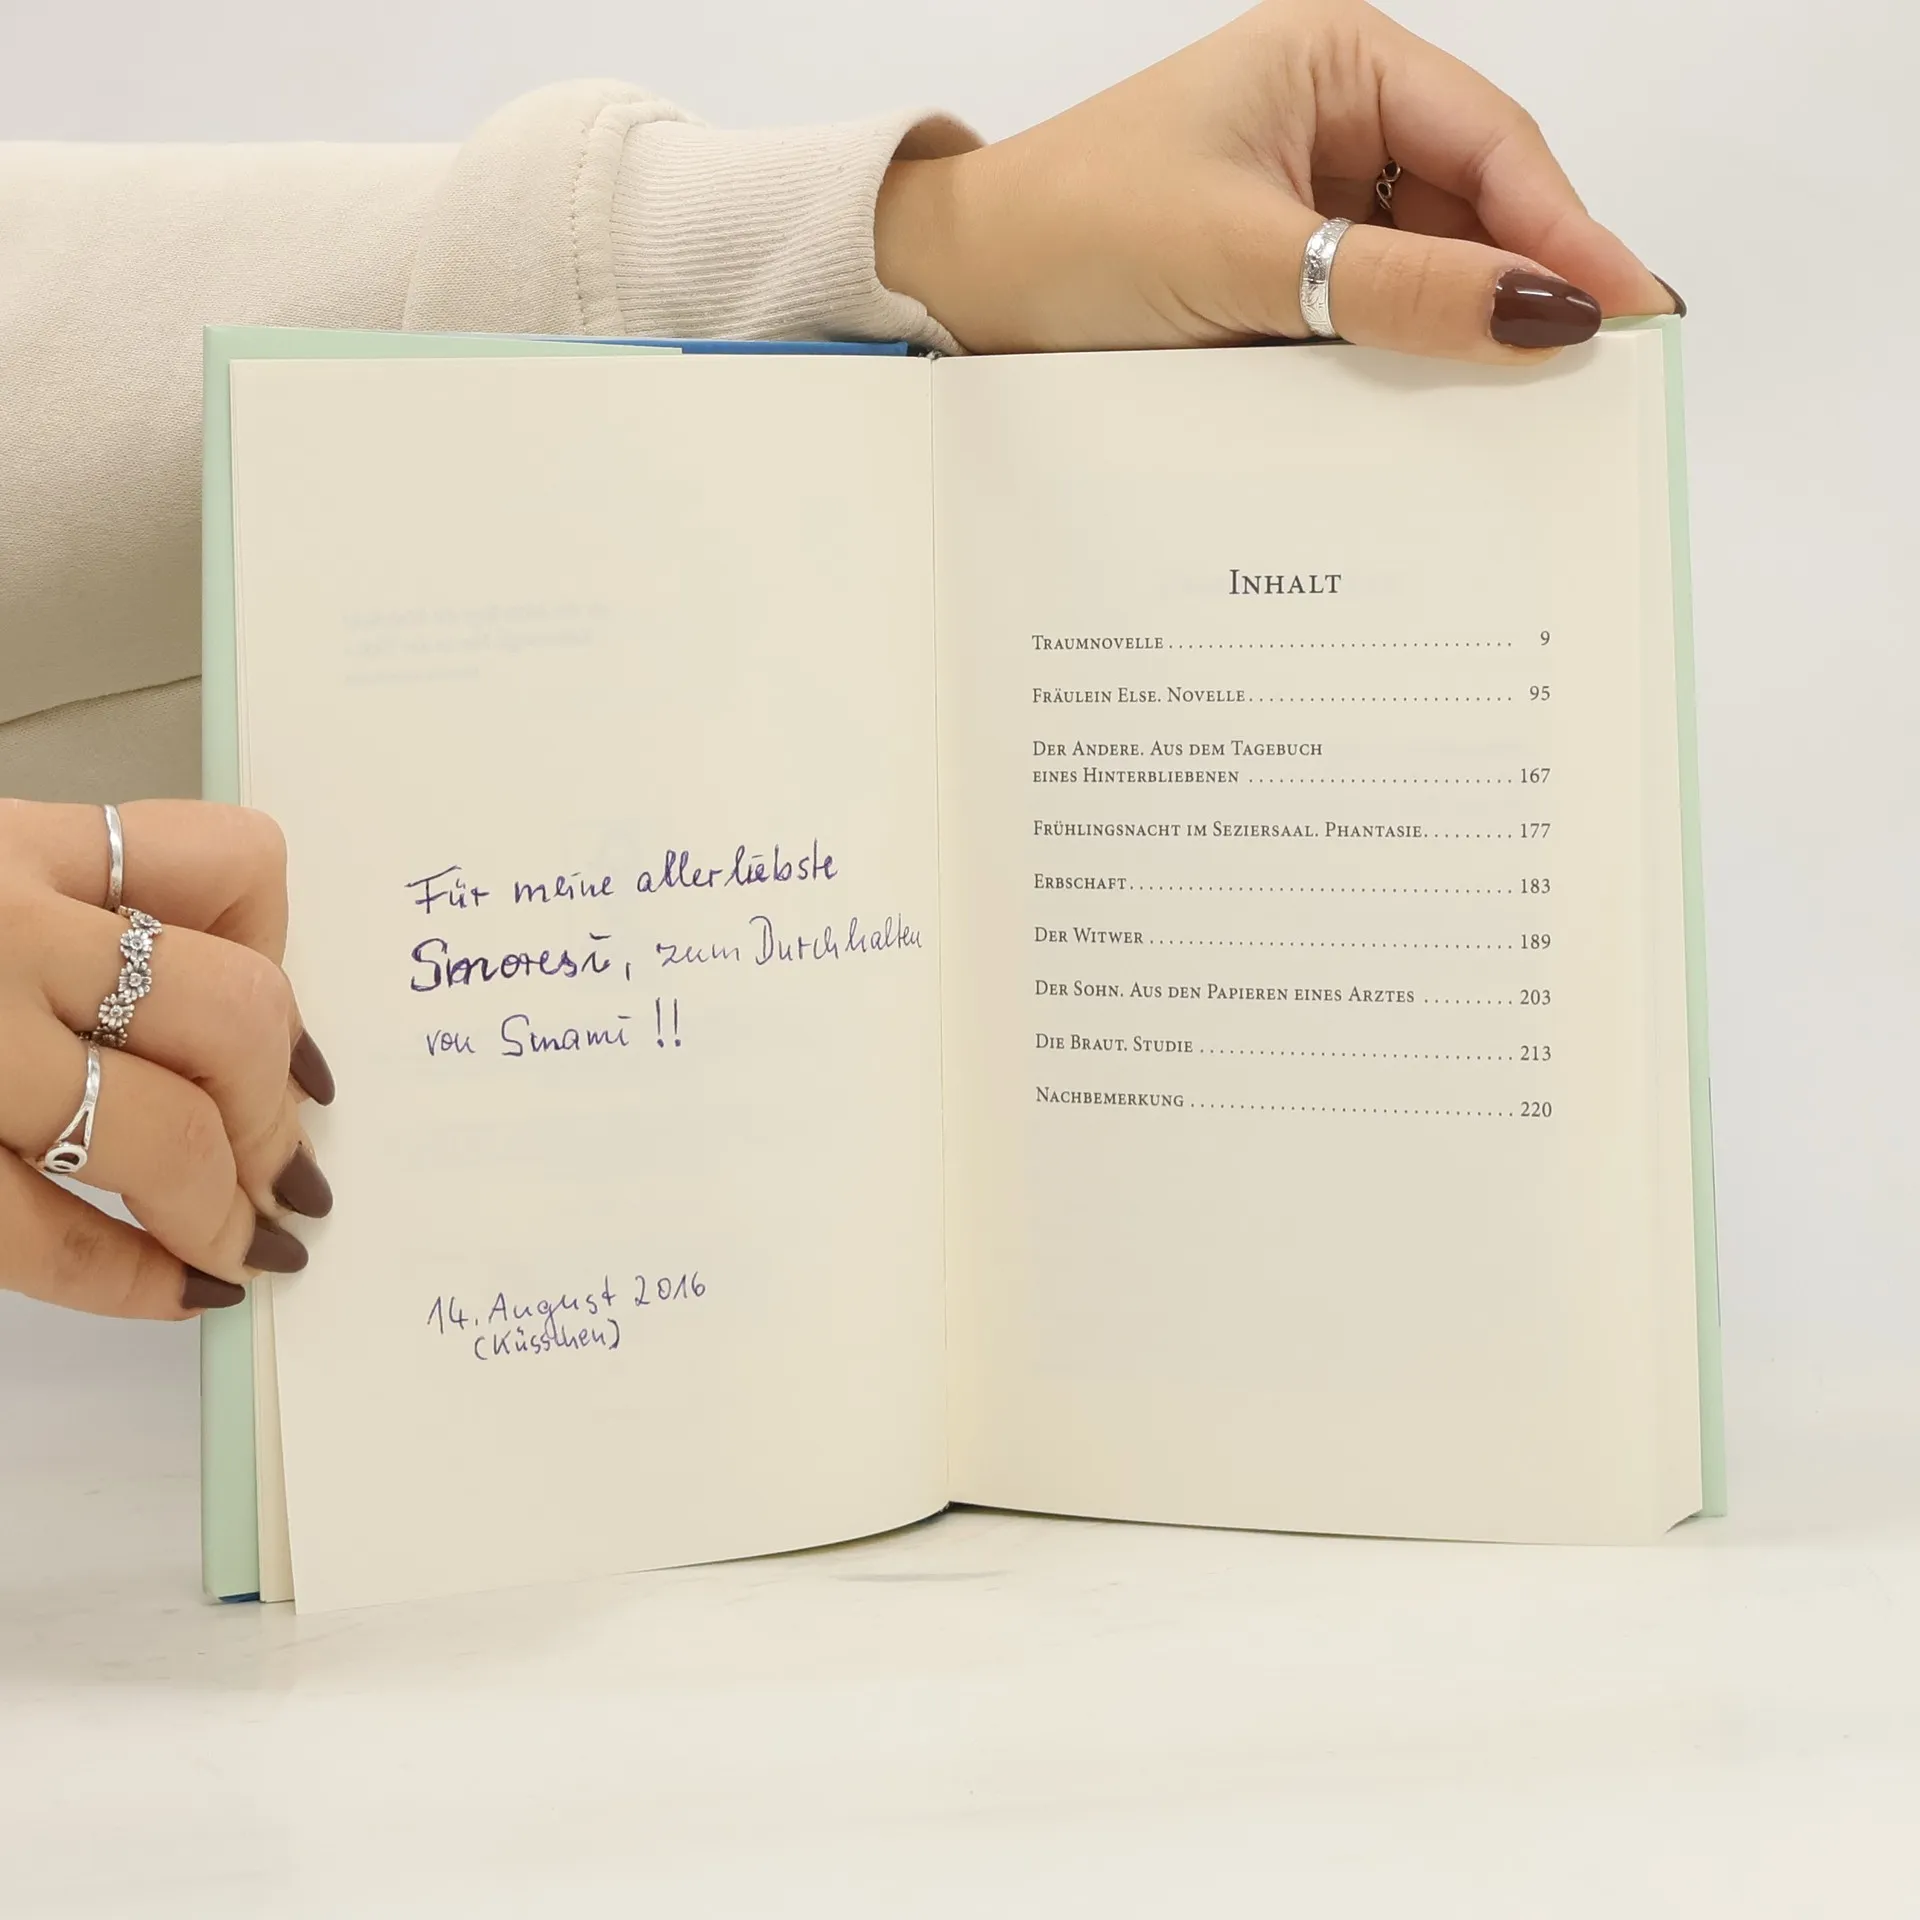 Für meine allerliebste
Smoresi, zum Durchhalten
von Smami !!
14. August 2016
(Küsschen)
INHALT
TRAUMNOVELLE .................................. 9
FRÄULEIN ELSE. NOVELLE .......................... 95
DER ANDERE. AUS DEM TAGEBUCH
EINES HINTERBLIEBENEN .......................... 167
FRÜHLINGSNACHT IM SEZIERSAAL. PHANTASIE ......... 177
ERBSCHAFT ...................................... 183
DER WITWER .................................... 189
DER SOHN. AUS DEN PAPIEREN EINES ARZTES ......... 203
DIE BRAUT. STUDIE ............................... 213
NACHBEMERKUNG ................................ 220